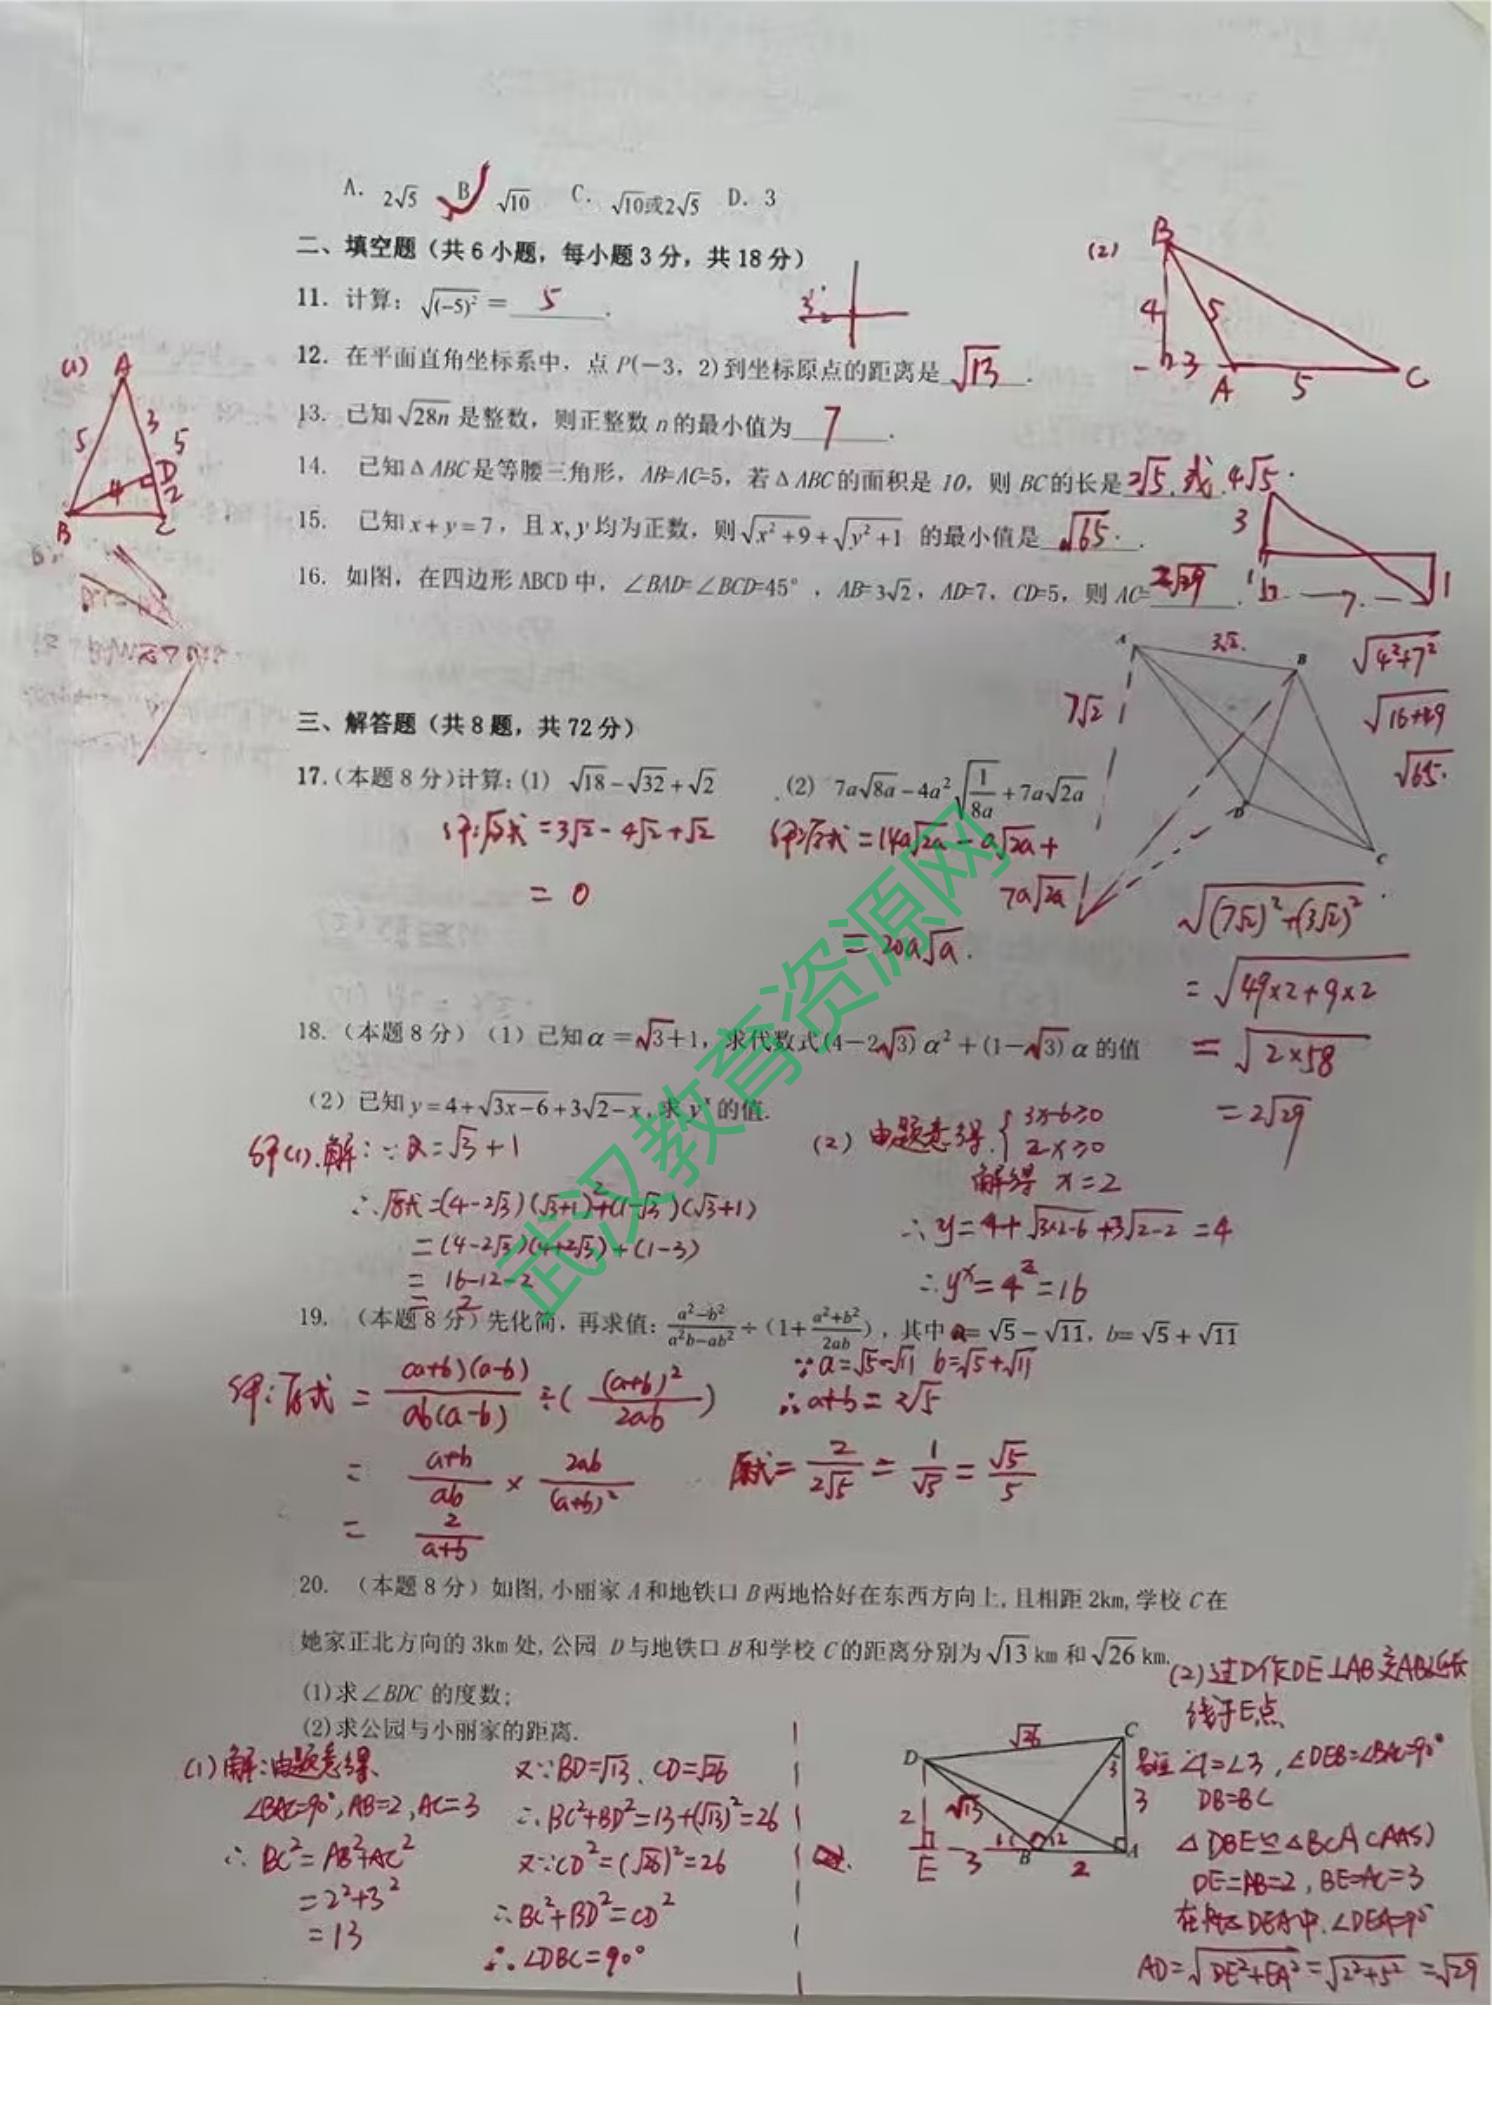 A. 2√5 B √10 C. √10或2√5 D. 3
二、填空题（共6小题，每小题3分，共18分）
11. 计算：√(-5)² = 5.
12. 在平面直角坐标系中，点P(-3，2)到坐标原点的距离是 √13.
13. 已知√28n是整数，则正整数n的最小值为 7.
14. 已知ΔABC是等腰三角形，AB=AC=5，若ΔABC的面积是10，则BC的长是 2√5.或.4√5.
15. 已知x+y=7，且x,y均为正数，则√x²+9+√y²+1 的最小值是 √65.
16. 如图，在四边形ABCD中，∠BAD=∠BCD=45°，AB=3√2，AD=7，CD=5，则AC=2√29.
(1) A
5 3 5
4 D 2
B C
(2) B
4 5
3 A 5 C
3
1 7 1
√4²+7²
√16+49
√65.
A 3√2. B
7√2
D C
三、解答题（共8题，共72分）
17.（本题8分）计算：(1) √18-√32+√2 (2) 7a√8a-4a²√1/8a+7a√2a
解：原式=3√2-4√2+√2
= 0
解：原式=14a√2a-a√2a+
7a√2a
=20a√a.
√(7√2)²+(3√2)²
=√49×2+9×2
=√2×58
=2√29
18.（本题8分）（1）已知α=√3+1，求代数式(4-2√3)α²+(1-√3)α的值
（2）已知y=4+√3x-6+3√2-x,求yˣ的值.
解(1).解：∵α=√3+1
∴原式=(4-2√3)(√3+1)²+(1-√3)(√3+1)
=(4-2√3)(4+2√3)+(1-3)
= 16-12-2
= 2
(2) 由题意得.{3x-6≥0
2-x≥0
解得 x=2
∴y=4+√3×2-6+3√2-2=4
∴yˣ=4²=16
19. （本题8分）先化简，再求值：a²-b²/a²b-ab²÷（1+a²+b²/2ab），其中a=√5-√11，b=√5+√11
解：原式=(a+b)(a-b)/ab(a-b)÷((a+b)²/2ab)
= a+b/ab × 2ab/(a+b)²
= 2/a+b
∵a=√5-√11 b=√5+√11
∴a+b=2√5
原式=2/2√5=1/√5=√5/5
20. （本题8分）如图,小丽家A和地铁口B两地恰好在东西方向上,且相距2km,学校C在
她家正北方向的3km处,公园 D与地铁口B和学校C的距离分别为√13km和√26km.
(1)求∠BDC的度数;
(2)求公园与小丽家的距离.
(1)解：由题意得、
∠BAC=90°,AB=2,AC=3
∴BC²=AB²+AC²
=2²+3²
=13
又∵BD=√13、CD=√26
∴BC²+BD²=13+(√13)²=26
又∵CD²=(√26)²=26
∴BC²+BD²=CD²
∴∠DBC=90°
D √26 C
2 √13 3 3
E 3 B 2 A
(2)过D作DE⊥AB交AB延长
线于E点
易证∠1=∠3,∠DEB=∠BAC=90°
DB=BC
△DBE≌△BCA(AAS)
DE=AB=2,BE=AC=3
在Rt△DEA中.∠DEA=90°
AD=√DE²+EA²=√2²+5²=√29
武汉教育资源网